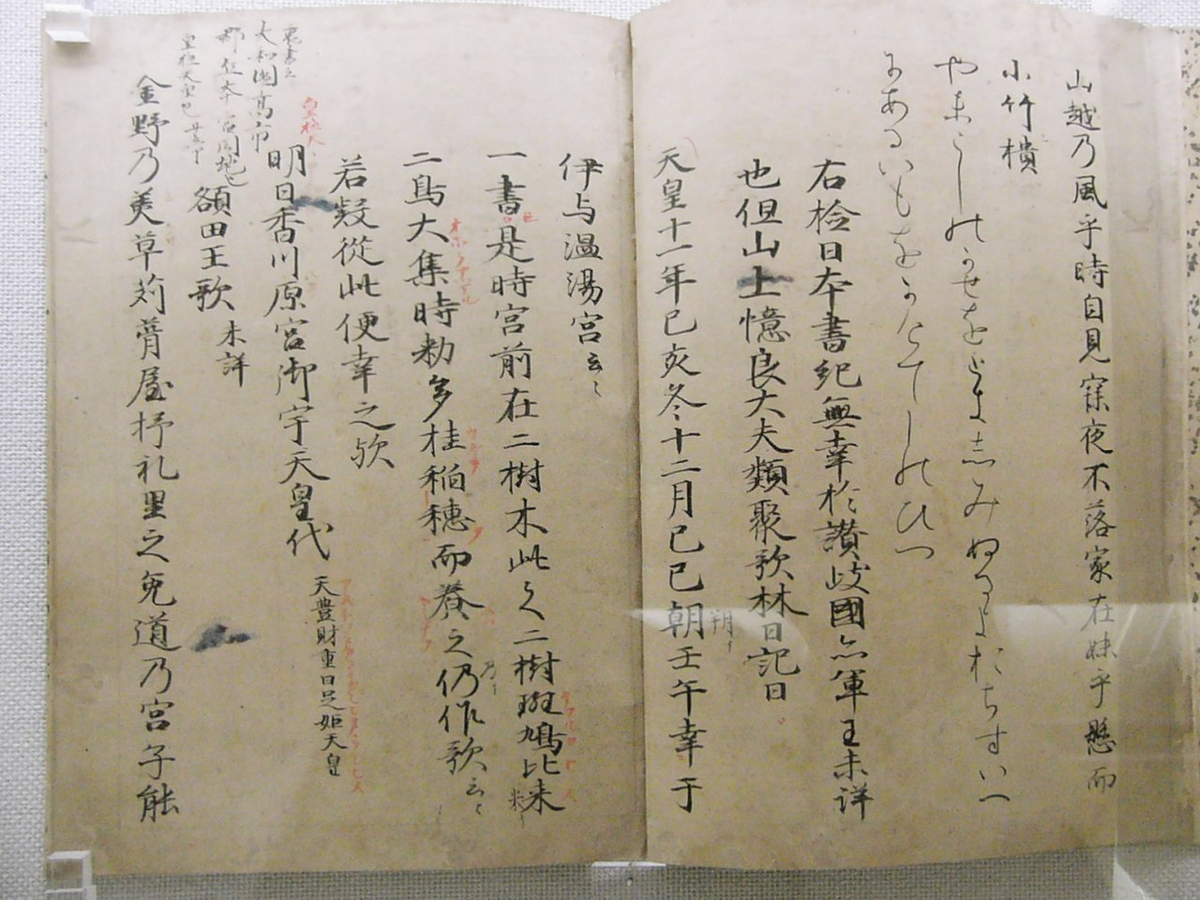 山越乃風乎時自見寐夜不落家在妹乎懸而
小竹櫃
やまこしのかせをときしみぬるよおちすいへ
にあるいもをかけてしのひつ
右檢日本書紀無幸於讚岐國亦軍王未詳
也但山上憶良大夫類聚歌林曰記曰
天皇十一年己亥冬十二月己巳朝壬午幸于
朔
伊与温湯宮云〻
一書是時宮前在二樹木此之二樹斑鳩比米
二鳥大集時勅多桂稲穗而養之仍作歌云〻
乃
若疑從此便幸之歟
明日香川原宮御宇天皇代
天豊財重日足姫天皇
皇極天
裏書云
大和國高市
郡丘本宮同地也
皇極天皇也
額田王歌
未詳
金野乃美草苅葺屋杼礼里之兔道乃宮子能